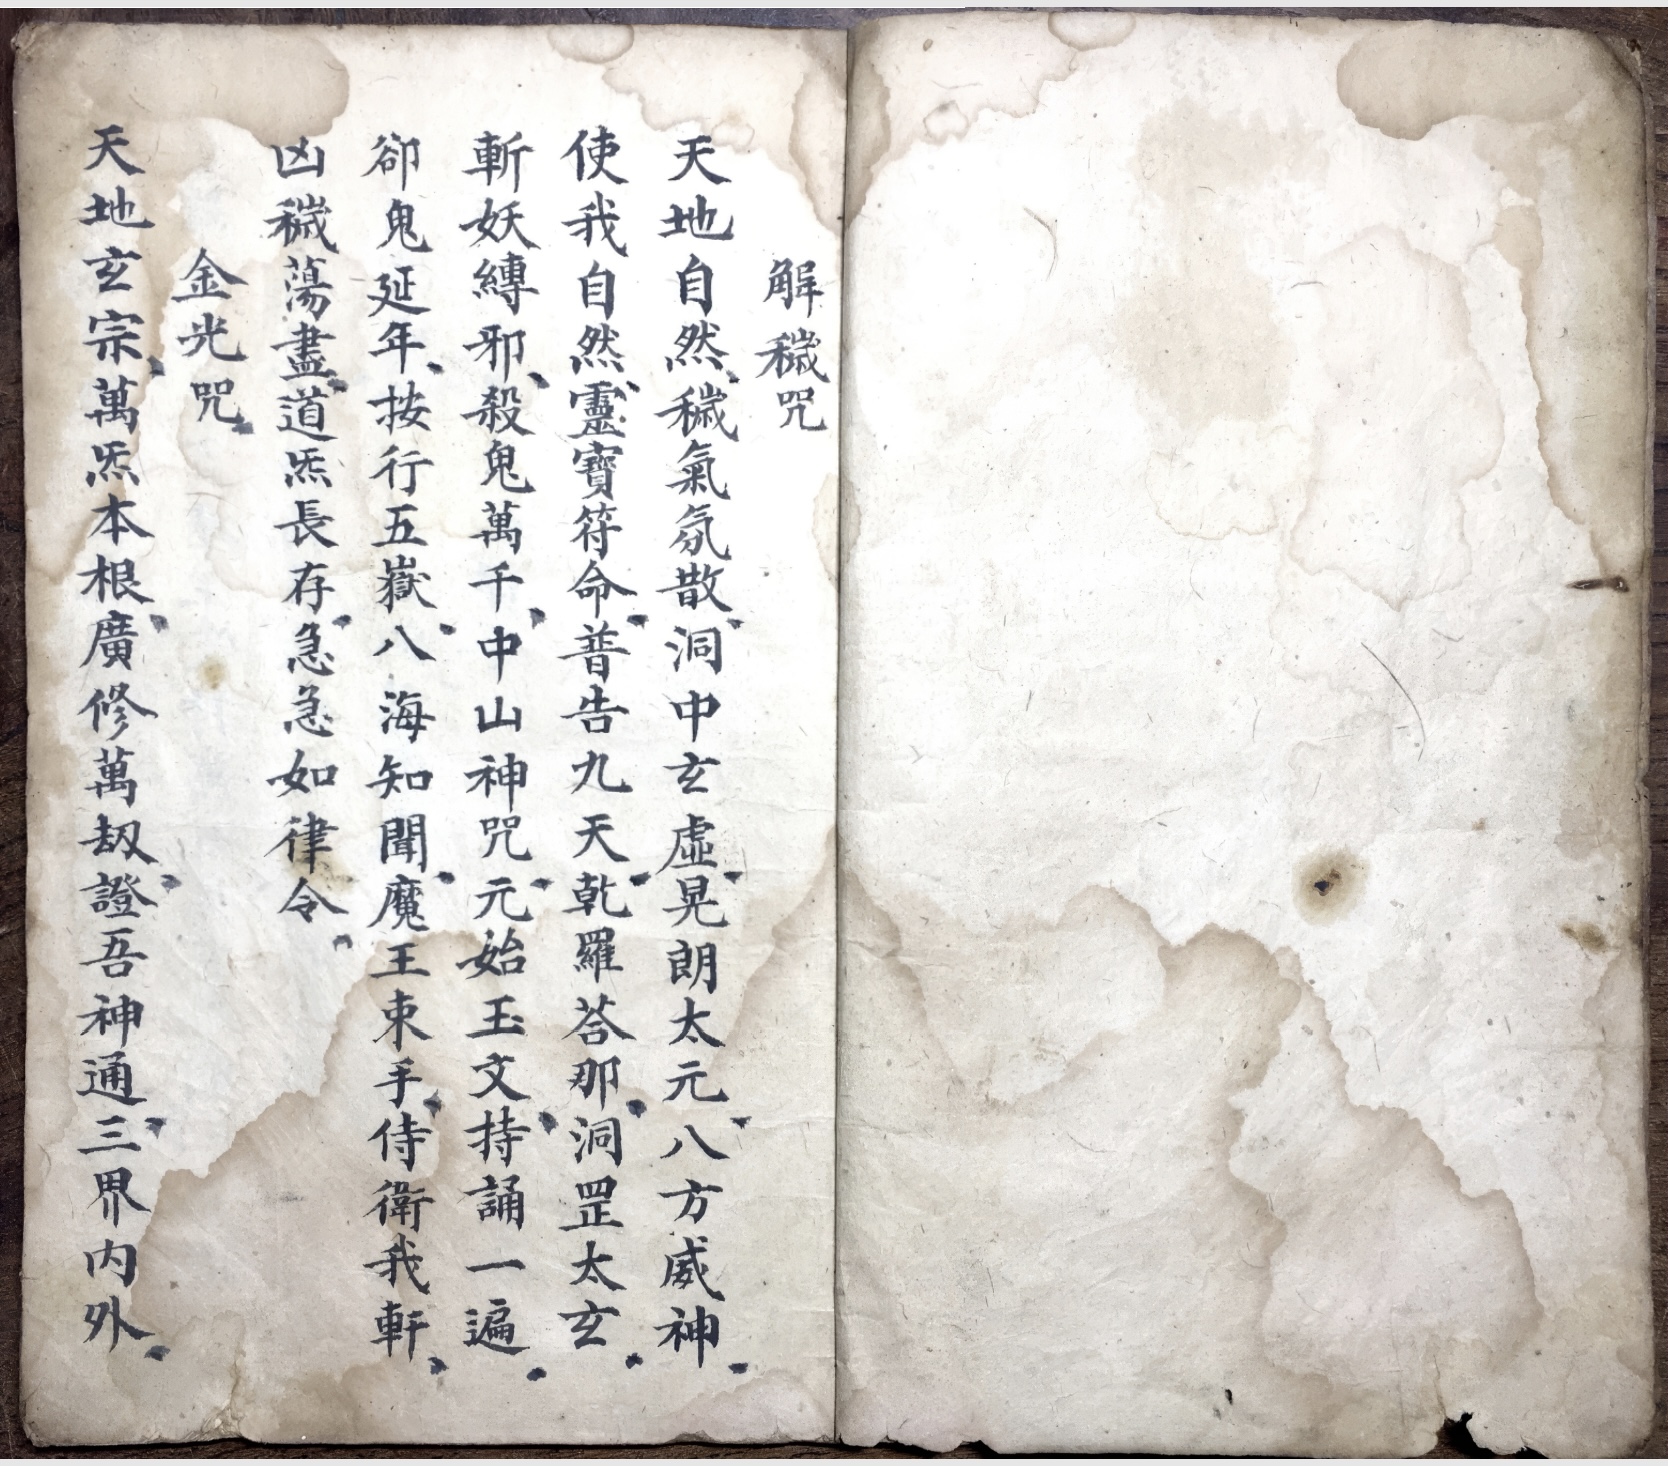 解穢咒
天地自然、穢氣氛散、洞中玄虛、晃朗太元、八方威神、
使我自然、靈寶符命、普告九天、乾羅荅那、洞罡太玄、
斬妖縛邪、殺鬼萬千、中山神咒、元始玉文、持誦一遍、
卻鬼延年、按行五嶽、八海知聞、魔王束手、侍衛我軒、
凶穢蕩盡、道炁長存、急急如律令、
金光咒、
天地玄宗、萬炁本根、廣修萬劫、證吾神通、三界內外、